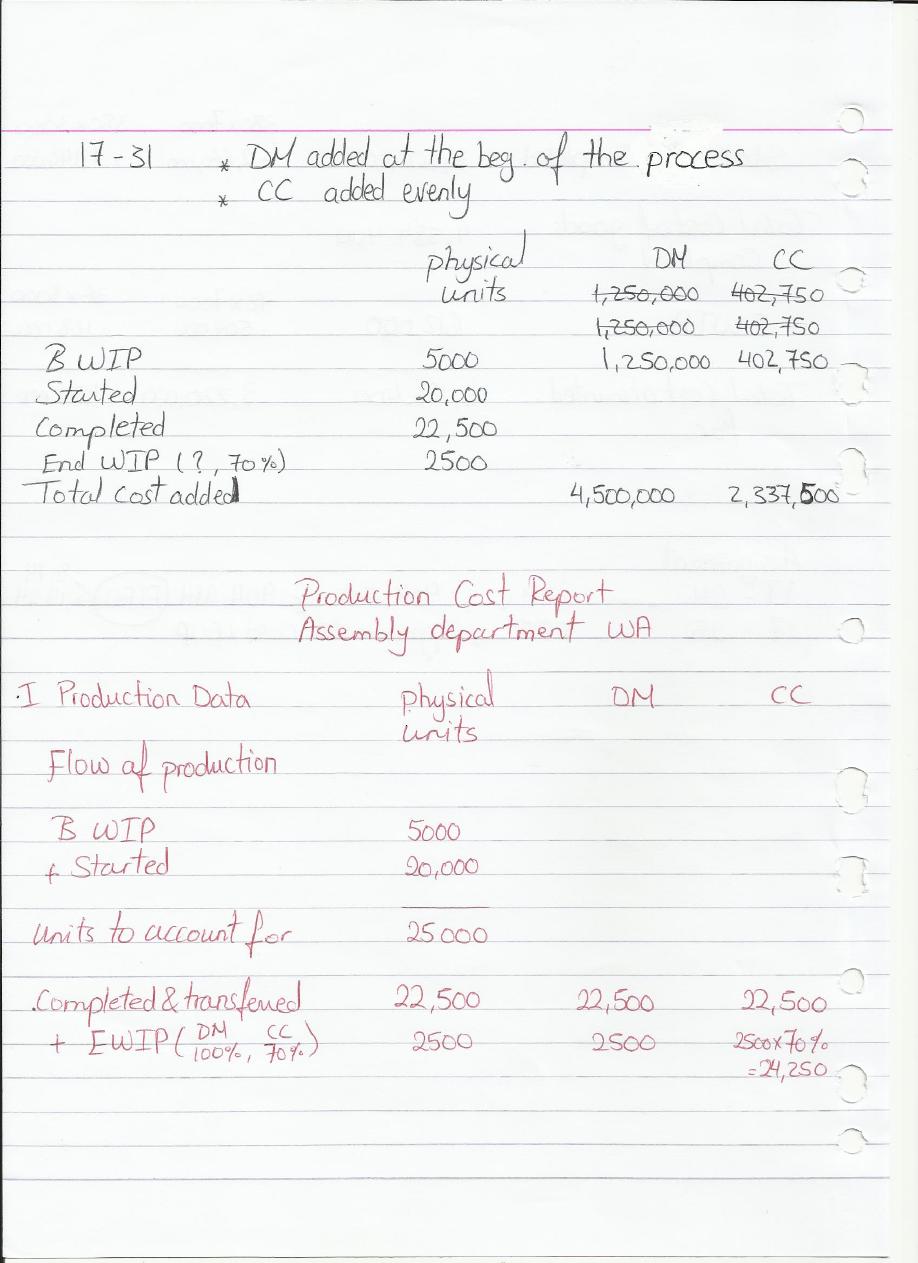 17-31 * DM added at the beg. of the process
* CC added evenly
physical units DM CC
1,250,000 402,750
1,250,000 402,750
B WIP 5000 1,250,000 402,750
Started 20,000
Completed 22,500
End WIP (?, 70%) 2500
Total cost added 4,500,000 2,337,500
Production Cost Report
Assembly department WA
.I Production Data physical units DM CC
Flow of production
B WIP 5000
+ Started 20,000
units to account for 25000
.Completed & transferred 22,500 22,500 22,500
+ EWIP (DM 100%, CC 70%) 2500 2500 2500x70%
=24,250